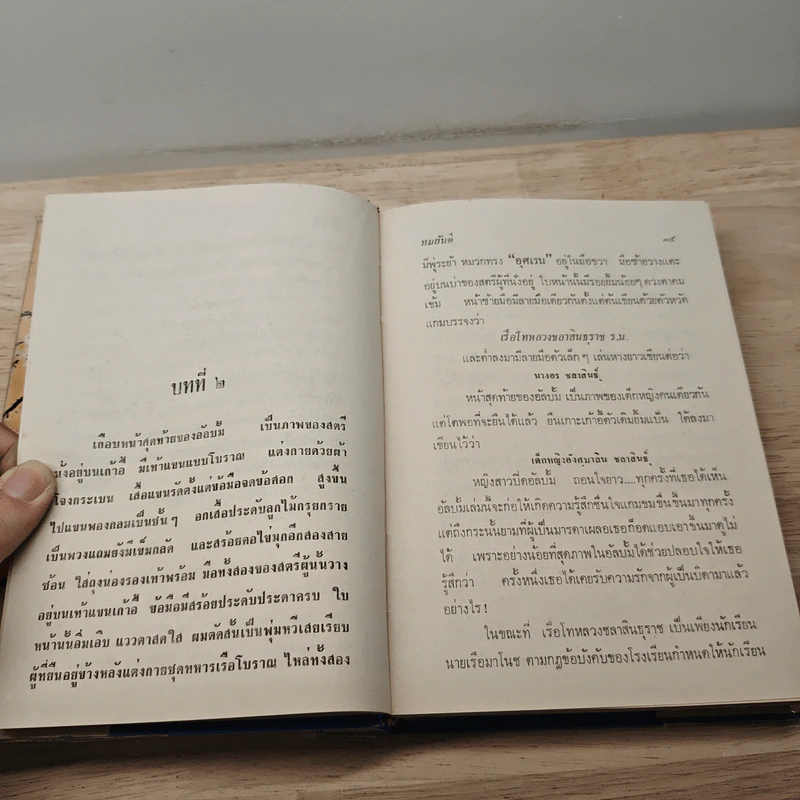 บทที่ ๒
เกือบหน้าสุดท้ายของอัลบั้ม เป็นภาพของสตรี
นั่งอยู่บนเก้าอี้ มีเท้าแขนแบบโบราณ แต่งกายด้วยผ้า
โจงกระเบน เสื้อแขนรัดตั้งแต่ข้อมือจดข้อศอก สูงขึ้น
ไปแขนพองกลมเป็นชั้น ๆ อกเสื้อประดับลูกไม้กรุยกราย
เป็นพวงแถมยังมีเข็มกลัด และสร้อยคอไข่มุกอีกสองสาย
ซ้อน ใส่ถุงน่องรองเท้าพร้อม มือทั้งสองของสตรีผู้นั้นวาง
อยู่บนเท้าแขนเก้าอี้ ข้อมือมีสร้อยประดับประดาครบ ใบ
หน้านั้นอิ่มเอิบ แววตาสดใส ผมตัดสั้นเป็นพุ่มหวีเสยเรียบ
ผู้ที่ยืนอยู่ข้างหลังแต่งกายชุดทหารเรือโบราณ ไหล่ทั้งสอง
ทมยันตี ๑๕
มีพู่ระย้า หมวกทรง “อุศเรน” อยู่ในมือขวา มือซ้ายวางแตะ
อยู่บนบ่าของสตรีผู้ที่นั่งอยู่ ใบหน้านั้นมีรอยยิ้มน้อยๆ ดวงตาคม
เข้ม หน้าซ้ายมือมีลายมือเดียวกันตั้งแต่ต้นเขียนด้วยตัวหวัด
แกมบรรจงว่า
เรือโทหลวงชลาสินธุราช ร.น.
และต่ำลงมามีลายมือตัวเล็ก ๆ เล่นหางยาวเขียนต่อว่า
นางอร ชลาสินธุ์
หน้าสุดท้ายของอัลบั้ม เป็นภาพของเด็กหญิงคนเดียวกัน
แต่โตพอที่จะยืนได้แล้ว ยืนเกาะเก้าอี้ตัวเดิมยิ้มแป้น ใต้ลงมา
เขียนไว้ว่า
เด็กหญิงอังศุมาลิน ชลาสินธุ์
หญิงสาวปิดอัลบั้ม ถอนใจยาว....ทุกครั้งที่เธอได้เห็น
อัลบั้มเล่มนี้จะก่อให้เกิดความรู้สึกชื่นใจแกมขมขื่นขึ้นมาทุกครั้ง
แต่ถึงกระนั้นยามที่ผู้เป็นมารดาเผลอเธอก็อดแอบเอาขึ้นมาดูไม่
ได้ เพราะอย่างน้อยที่สุดภาพในอัลบั้มได้ช่วยปลอบใจให้เธอ
รู้สึกว่า ครั้งหนึ่งเธอได้เคยรับความรักจากผู้เป็นบิดามาแล้ว
อย่างไร !
ในขณะที่ เรือโทหลวงชลาสินธุราช เป็นเพียงนักเรียน
นายเรือมาโนช ตามกฎข้อบังคับของโรงเรียนกำหนดให้นักเรียน